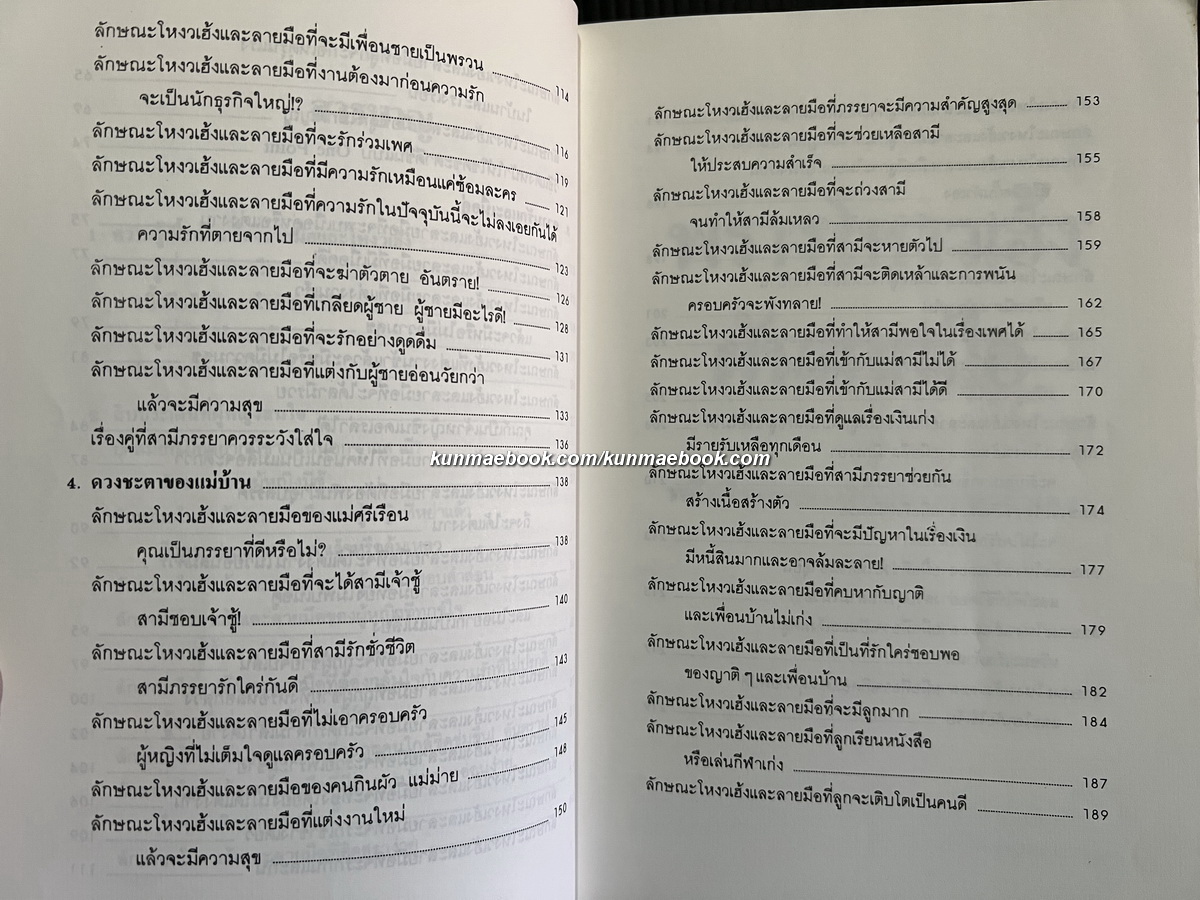 ลักษณะโหงวเฮ้งและลายมือที่จะมีเพื่อนชายเป็นพรวน 114
ลักษณะโหงวเฮ้งและลายมือที่งานต้องมาก่อนความรัก
จะเป็นนักธุรกิจใหญ่!? 116
ลักษณะโหงวเฮ้งและลายมือที่จะรักร่วมเพศ 119
ลักษณะโหงวเฮ้งและลายมือที่มีความรักเหมือนแค่ซ้อมละคร 121
ลักษณะโหงวเฮ้งและลายมือที่ความรักในปัจจุบันนี้จะไม่ลงเอยกันได้
ความรักที่ตายจากไป 123
ลักษณะโหงวเฮ้งและลายมือที่จะฆ่าตัวตาย อันตราย! 126
ลักษณะโหงวเฮ้งและลายมือที่เกลียดผู้ชาย ผู้ชายมีอะไรดี! 128
ลักษณะโหงวเฮ้งและลายมือที่จะรักอย่างดูดดื่ม 131
ลักษณะโหงวเฮ้งและลายมือที่แต่งกับผู้ชายอ่อนวัยกว่า
แล้วจะมีความสุข 133
เรื่องคู่ที่สามีภรรยาควรระวังใส่ใจ 136
4. ดวงชะตาของแม่บ้าน 138
ลักษณะโหงวเฮ้งและลายมือของแม่ศรีเรือน
คุณเป็นภรรยาที่ดีหรือไม่? 138
ลักษณะโหงวเฮ้งและลายมือที่จะได้สามีเจ้าชู้
สามีชอบเจ้าชู้! 140
ลักษณะโหงวเฮ้งและลายมือที่สามีรักชั่วชีวิต
สามีภรรยารักใคร่กันดี 143
ลักษณะโหงวเฮ้งและลายมือที่ไม่เอาครอบครัว
ผู้หญิงที่ไม่เต็มใจดูแลครอบครัว 145
ลักษณะโหงวเฮ้งและลายมือของคนกินผัว แม่ม่าย 148
ลักษณะโหงวเฮ้งและลายมือที่แต่งงานใหม่
แล้วจะมีความสุข 150
ลักษณะโหงวเฮ้งและลายมือที่ภรรยาจะมีความสำคัญสูงสุด 153
ลักษณะโหงวเฮ้งและลายมือที่จะช่วยเหลือสามี
ให้ประสบความสำเร็จ 155
ลักษณะโหงวเฮ้งและลายมือที่จะถ่วงสามี
จนทำให้สามีล้มเหลว 158
ลักษณะโหงวเฮ้งและลายมือที่สามีจะหายตัวไป 159
ลักษณะโหงวเฮ้งและลายมือที่สามีจะติดเหล้าและการพนัน
ครอบครัวจะพังทลาย! 162
ลักษณะโหงวเฮ้งและลายมือที่ทำให้สามีพอใจในเรื่องเพศได้ 165
ลักษณะโหงวเฮ้งและลายมือที่เข้ากับแม่สามีไม่ได้ 167
ลักษณะโหงวเฮ้งและลายมือที่เข้ากับแม่สามีได้ดี 170
ลักษณะโหงวเฮ้งและลายมือที่ดูแลเรื่องเงินเก่ง
มีรายรับเหลือทุกเดือน 172
kunmaebook.com/kunmaebook.com
ลักษณะโหงวเฮ้งและลายมือที่สามีภรรยาช่วยกัน
สร้างเนื้อสร้างตัว 174
ลักษณะโหงวเฮ้งและลายมือที่จะมีปัญหาในเรื่องเงิน
มีหนี้สินมากและอาจล้มละลาย! 177
ลักษณะโหงวเฮ้งและลายมือที่คบหากับญาติ
และเพื่อนบ้านไม่เก่ง 179
ลักษณะโหงวเฮ้งและลายมือที่เป็นที่รักใคร่ชอบพอ
ของญาติ ๆ และเพื่อนบ้าน 182
ลักษณะโหงวเฮ้งและลายมือที่จะมีลูกมาก 184
ลักษณะโหงวเฮ้งและลายมือที่ลูกเรียนหนังสือ
หรือเล่นกีฬาเก่ง 187
ลักษณะโหงวเฮ้งและลายมือที่ลูกจะเติบโตเป็นคนดี 189